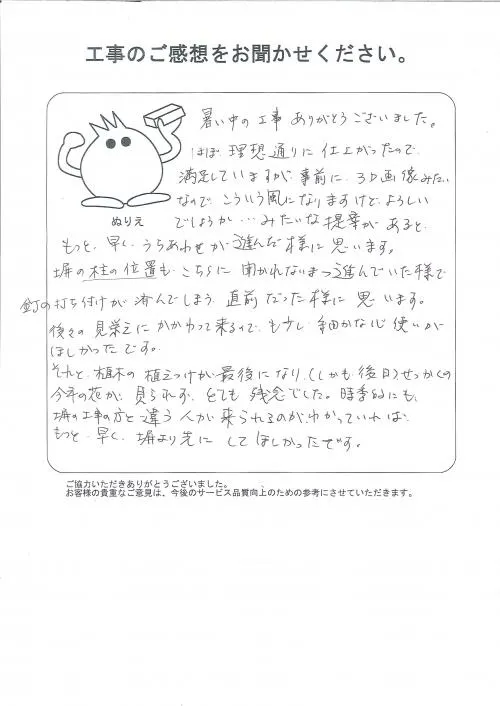 工事のご感想をお聞かせください。
暑い中の工事 ありがとうございました。
ほぼ 理想通りに 仕上がったので
満足していますが、事前に、3D画像みたい
なので こういう風になりますけど、よろしい
でしょうか…みたいな 提案が あると
ぬりえ
もっと、早く、うちあわせが 進んだ 様に 思います。
塀の 柱の 位置も こちらに 聞かれないまま 進んでいた様で
釘の打ち付けが 済んでしまう 直前だった様に 思います。
後々の 見栄えに かかわって来るので、もう少し 細かな心使いが
ほしかったです。
それと、植木の 植えつけが 最後になり、(しかも 後日)せっかくの
今年の花が 見られず、とても 残念でした。時季的にも、
塀の工事の方と 違う 人が 来られるのが わかっていれば
もっと 早く、塀より先に して ほしかったです。
ご協力いただきありがとうございました。
お客様の貴重なご意見は、今後のサービス品質向上のための参考にさせていただきます。